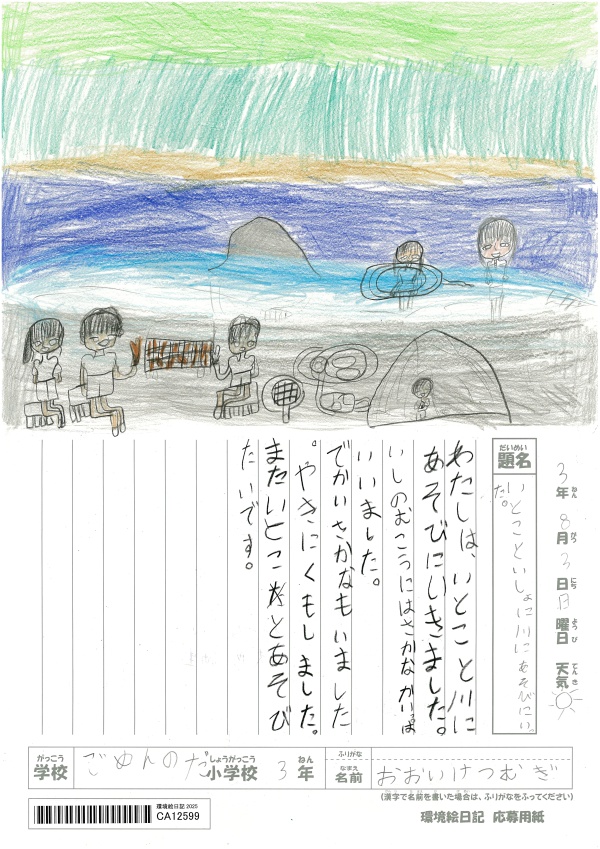 3年8月3日日曜日 天気
題名 だいめい
いとこといっしょに川にあそびにいった。
わたしは、いとこと川に
あそびにいきました。
いしのむこうにはさかながいっぱ
いいました。
でかいさかなもいました
。やきにくもしました。
またいとこたちとあそび
たいです。
がっこう 学校 ごめんのだ しょうがっこう 小学校 3 ねん 年
ふりがな
なまえ 名前 おおいけつむぎ
(漢字で名前を書いた場合は、ふりがなをふってください)
環境絵日記2025
CA12599
環境絵日記 応募用紙